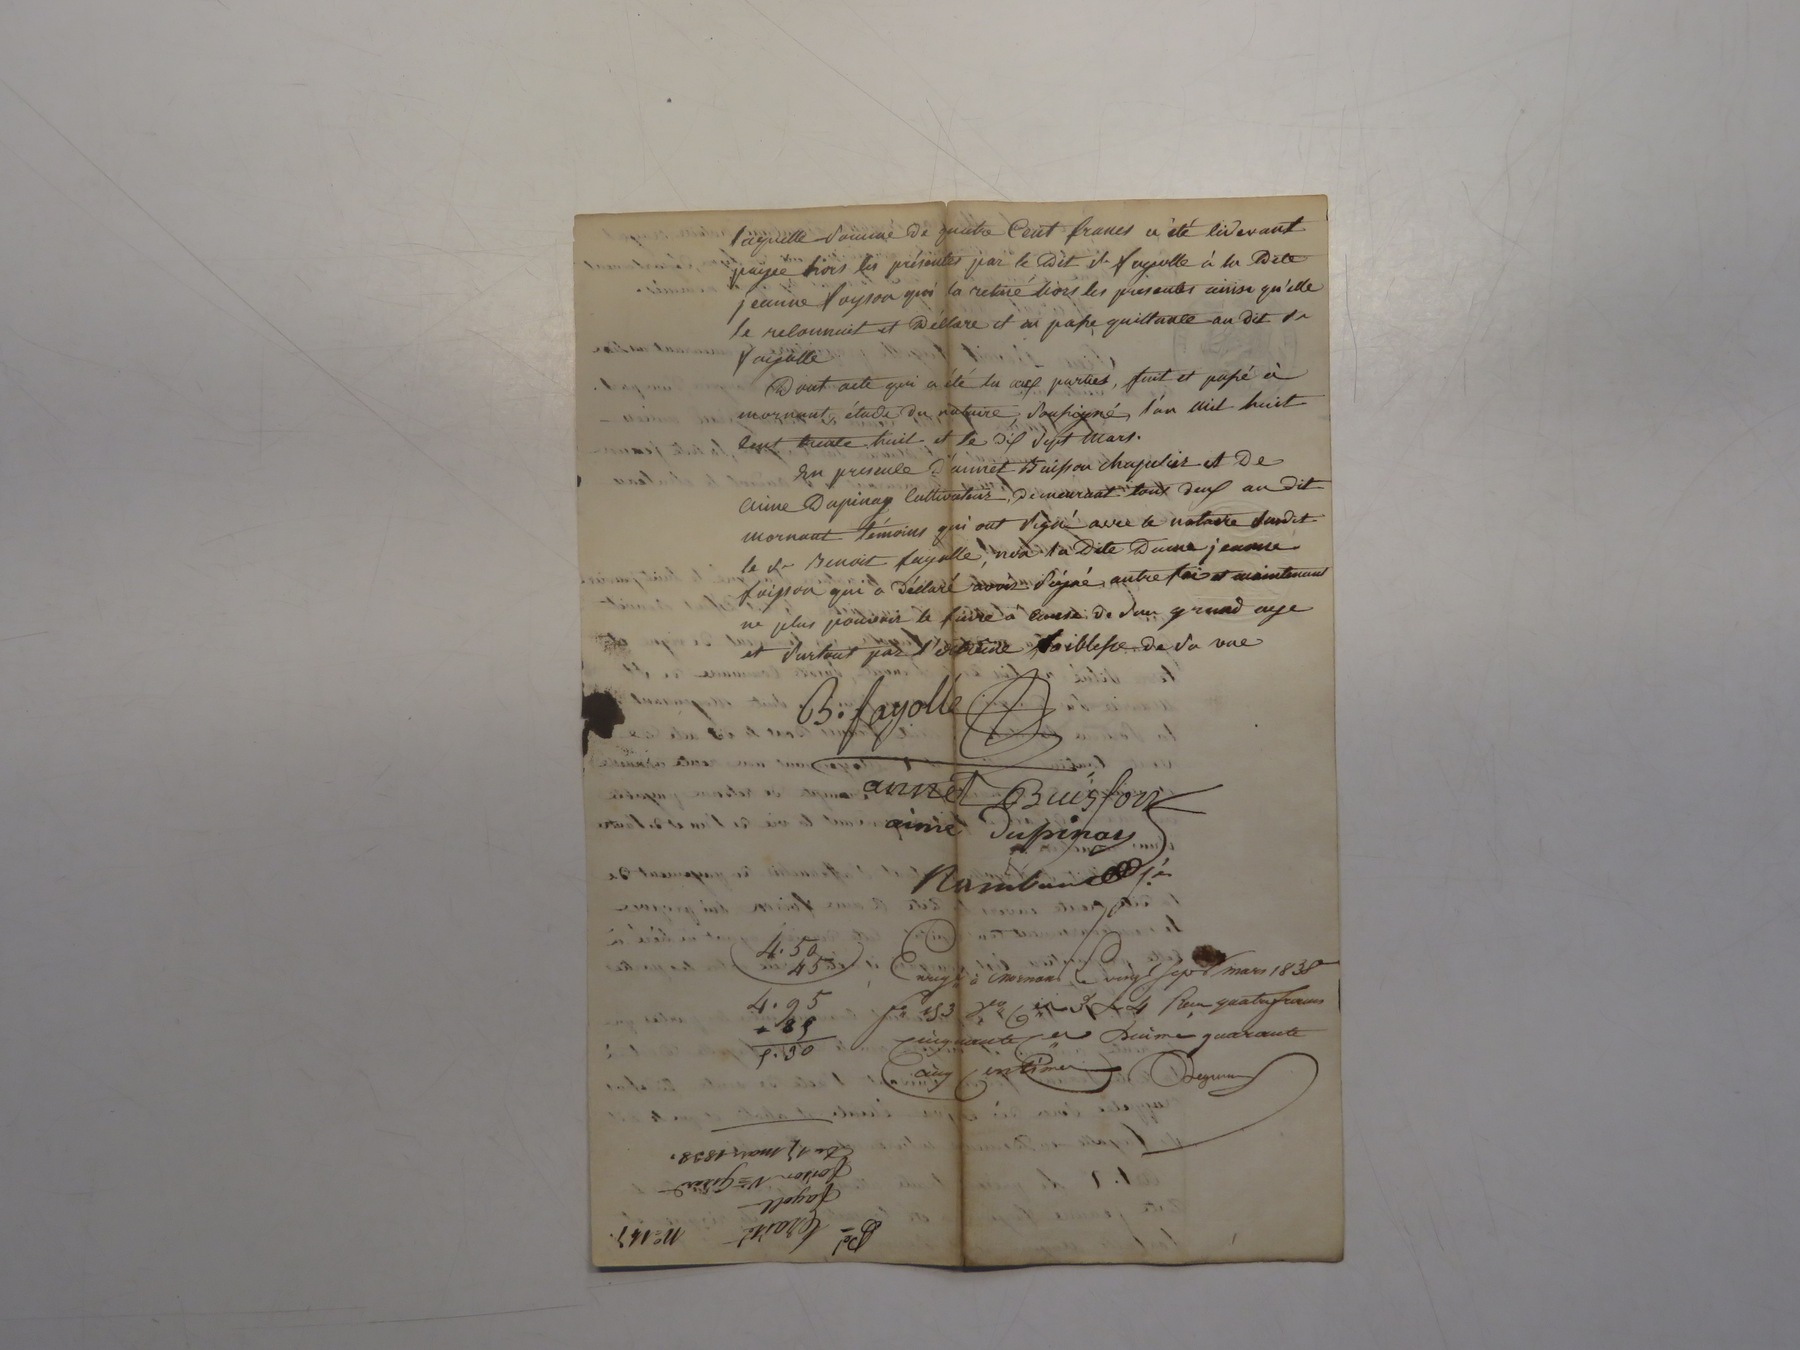 laquelle somme de quatre Cent francs a été cidevant
payée hors les présentes par le Dit Sr fayolle à la Dite
jeanne foyson qui la retiré hors les presentes ainsi qu'elle
le reconnait et Déclare et en passe quittance au dit Sr
fayolle
Dont acte qui a été lu aux parties, fait et passé à
mornant, étude du notaire soussigné, l'an mil huit
cent trente huit et le dix sept Mars.
En presence d'annet Buisson chapelier et De
aimé Dupinay Cultivateur, demeurant tous deux au dit
mornant témoins qui ont signé avec le notaire susdit
le Sr Benoit fayolle, non la Dite Dame jeanne
foisson qui a Déclaré avoir signé autre fois et maintenant
ne plus pouvoir le faire à cause de son grand age
et surtout par l'extrême faiblesse de sa vue
B. fayolle
annet Buisson
aimé dupinay
4.50
45
Enregé à Mornant le vingt sept mars 1838
4.95
fo 153 Reçu quatre francs
cinquante et Dixime quarante
5.30
cinq centimes
Du 17 mars 1838.
foison Ve
fayolle
traité
No 147.